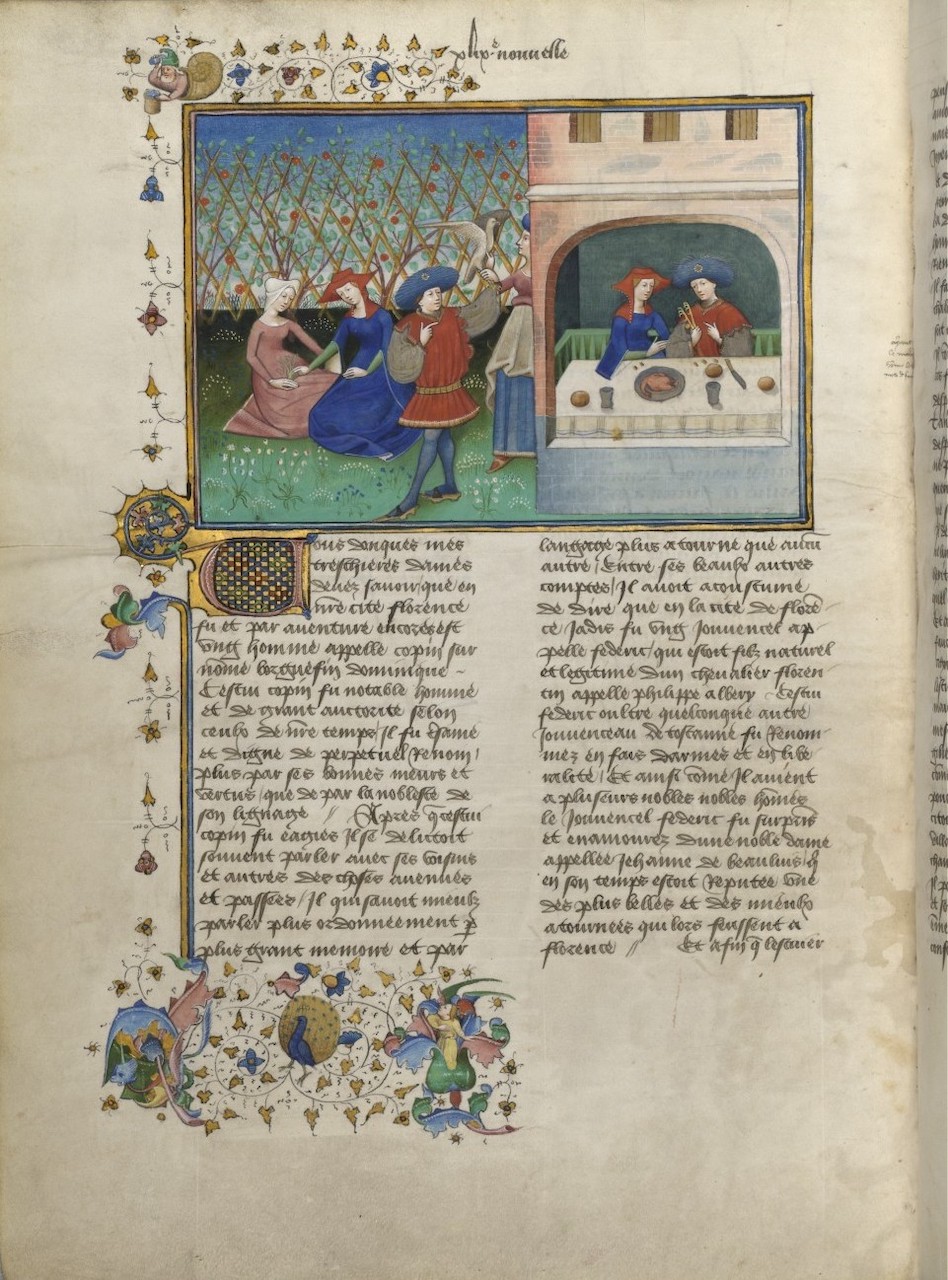 xlix.e nouuelle
Vous donques mes
treschieres dames
deuez sauoir que en
nr̄e cite florence
fu et par auenture encores est
vng homme appelle copin sur
nōme borguesin dominique ~
Cestui copin fu notable homme
et de grant auctorite selon
ceulx de nr̄e temps / Il fu fame
et digne de perpetuel Renom /
plus par ses bonnes meurs et
vertus / que de par la noblesse de
son lignage // Apres q̄ cestui
copin fu eagies Il se delittoit
souuent parler auec ses voisins
et autres des choses auenues
et passees / Il qui sauoit mieulx
parler plus ordonneement p̄
plus grant memoire et par
langage plus atourne que aucū
autre / Entre ses beaulx autres
comptes / Il auoit acoustume
de dire que en la cite de flore-
ce Jadis fu vng Jouuencel ap-
pelle federic / qui estoit filz naturel
et legitime dun cheualier floren
tin appelle philippe albery Cestui
federic oultre quelconque autre
Jouuenceau de toscanne fu Renom
mez en fais darmes et en libe
ralite / Et ainsi cōme Il auient
a pluseurs nobles nobles hōmes
le Jouuencel federic fu surpris
et enamourez dune noble dame
appellee Jehanne de beaulius / q̄
en son temps estoit Reputee vne
des plus belles et des mieulx
atournees qui lors feussent a
florence // Et afin q̄ lescuier